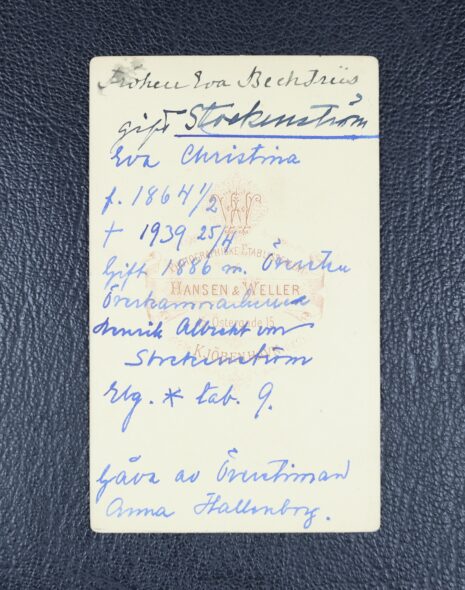 Fröken Eva Beck Friis
gift Stockenström
Eva Christina
f. 1864 1/2
† 1939 25/4
Gift 1886 m. Översten
Överkammarherren
Henrik Albrecht von
Stockenström
Elg. * tab. 9.
Gåva av Överstinnan
Anna Hallenborg.
HANSEN & WELLER
Østergade 15
KJÖBENHAVN